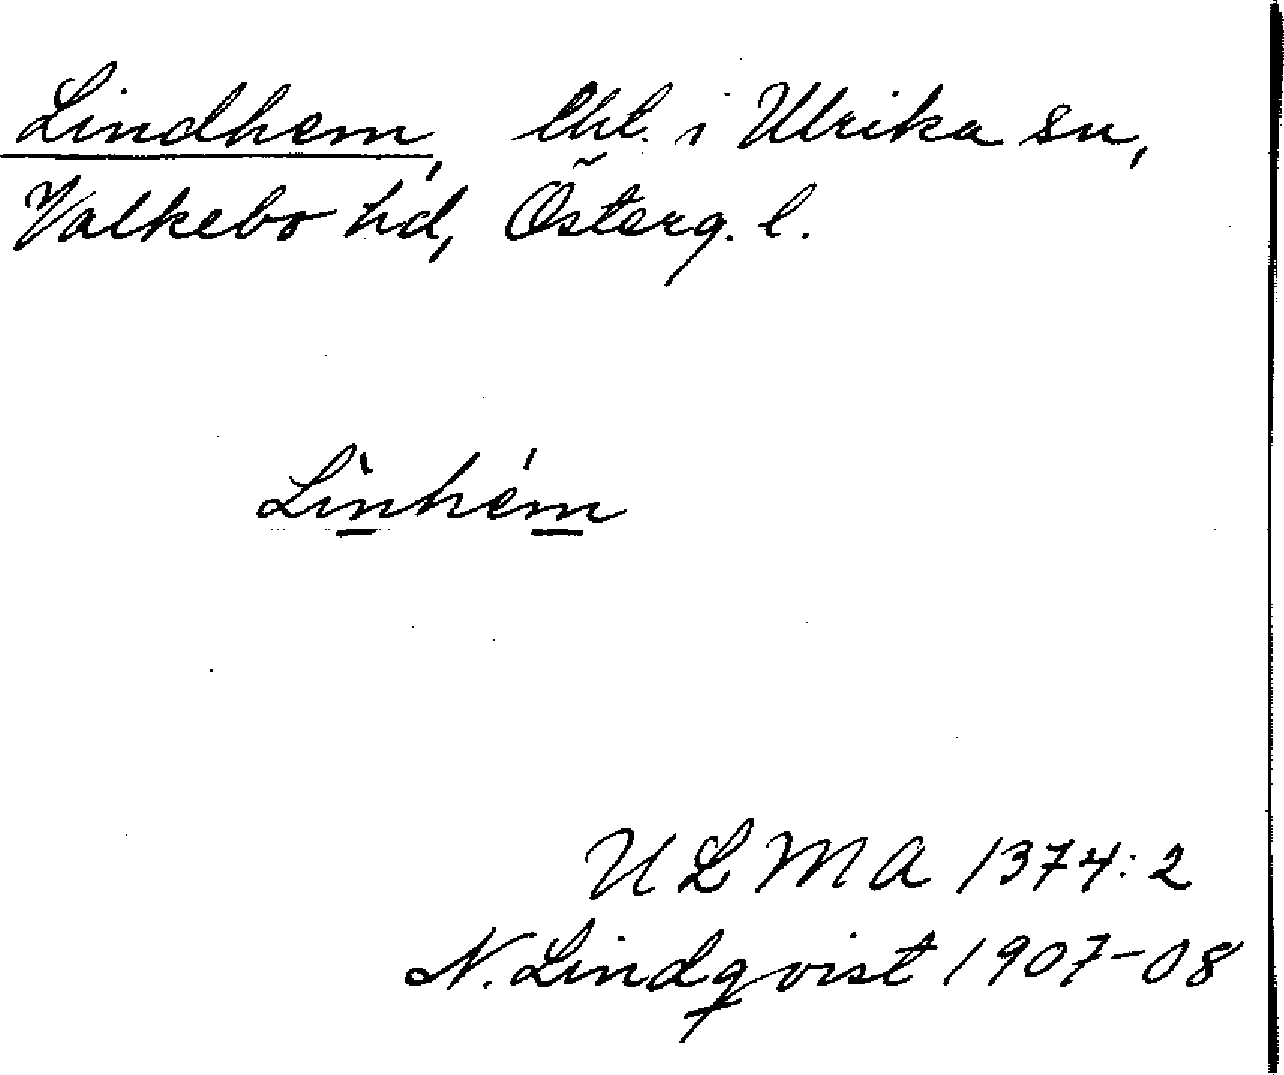 Lindhem, lht. i Ulrika sn,
Valkebo hd, Österg. l.
Lìnhém
ULMA 1374:2
N. Lindqvist 1907-08